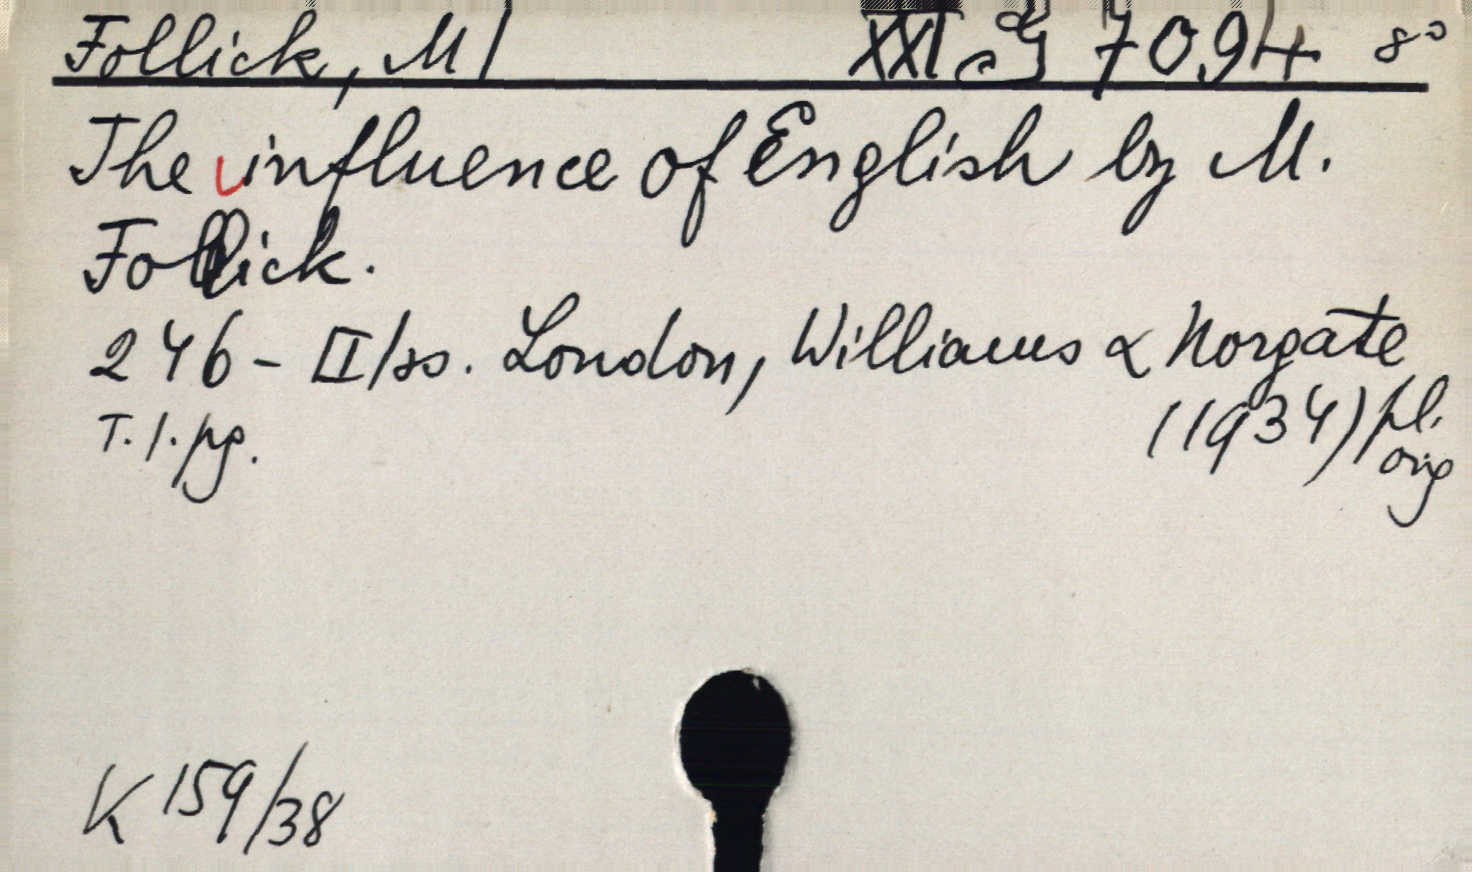 Follick, M/ XXI G 7094 8°
The influence of English by M.
Follick.
246 - II/ss. London, Williams & Norgate
(1934) pl. orig
T. 1. pg.
K 159/38